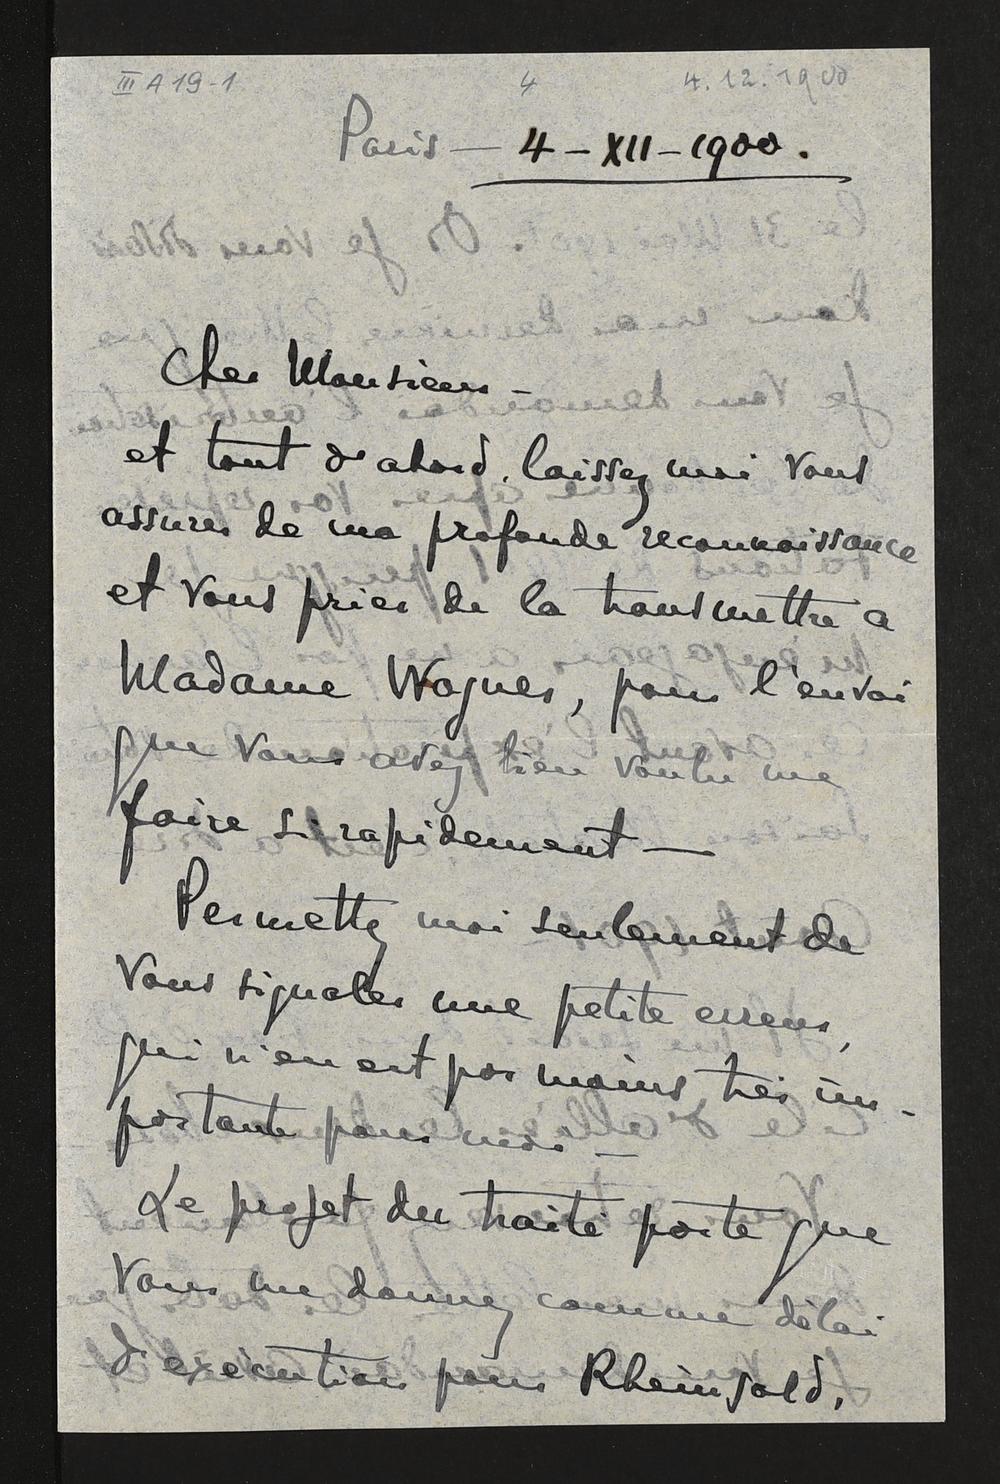 III A 19-1 4 4.12.1900
Paris — 4 – XII – 1900.
Cher Monsieur –
et tout d'abord, laissez moi vous
assurer de ma profonde reconnaissance
et vous prier de la transmettre a
Madame Wagner, pour l'envoi
que vous avez bien voulu me
faire si rapidement —
Permettez moi seulement de
vous signaler une petite erreur,
qui n'en est pas moins très im-
portante pour moi —
Le projet du traité porte que
vous me donnez comme délai
d'exécution pour Rheingold,